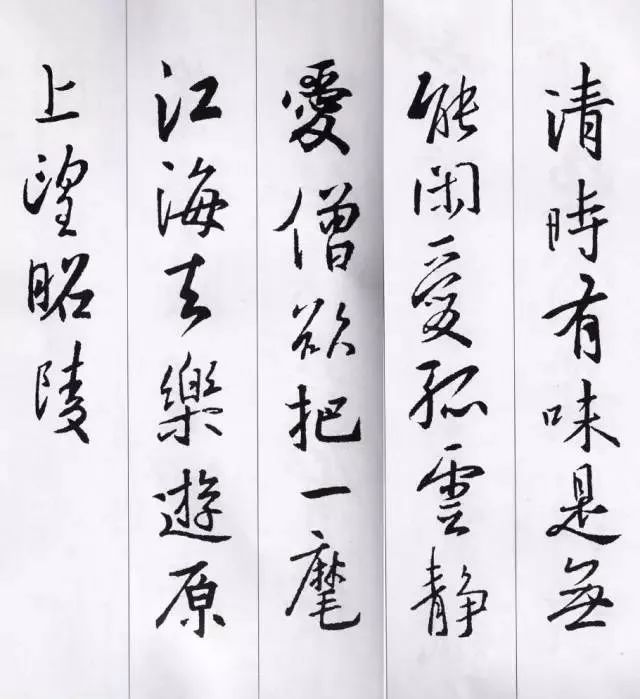 清時有味是無
能閑愛孤雲靜
愛僧欲把一麾
江海去樂遊原
上望昭陵